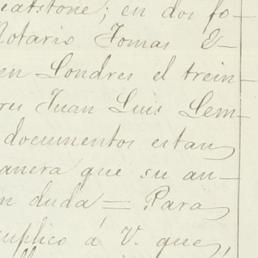 eatstone; en dos fo-
Notario Tomas E-
en Londres el trein-
res Juan Luis Lem-
documentos estan
anera que su au-
n duda = Para
suplico á V. que,